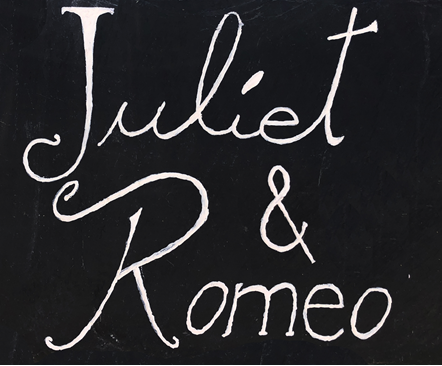 Juliet
&
Romeo